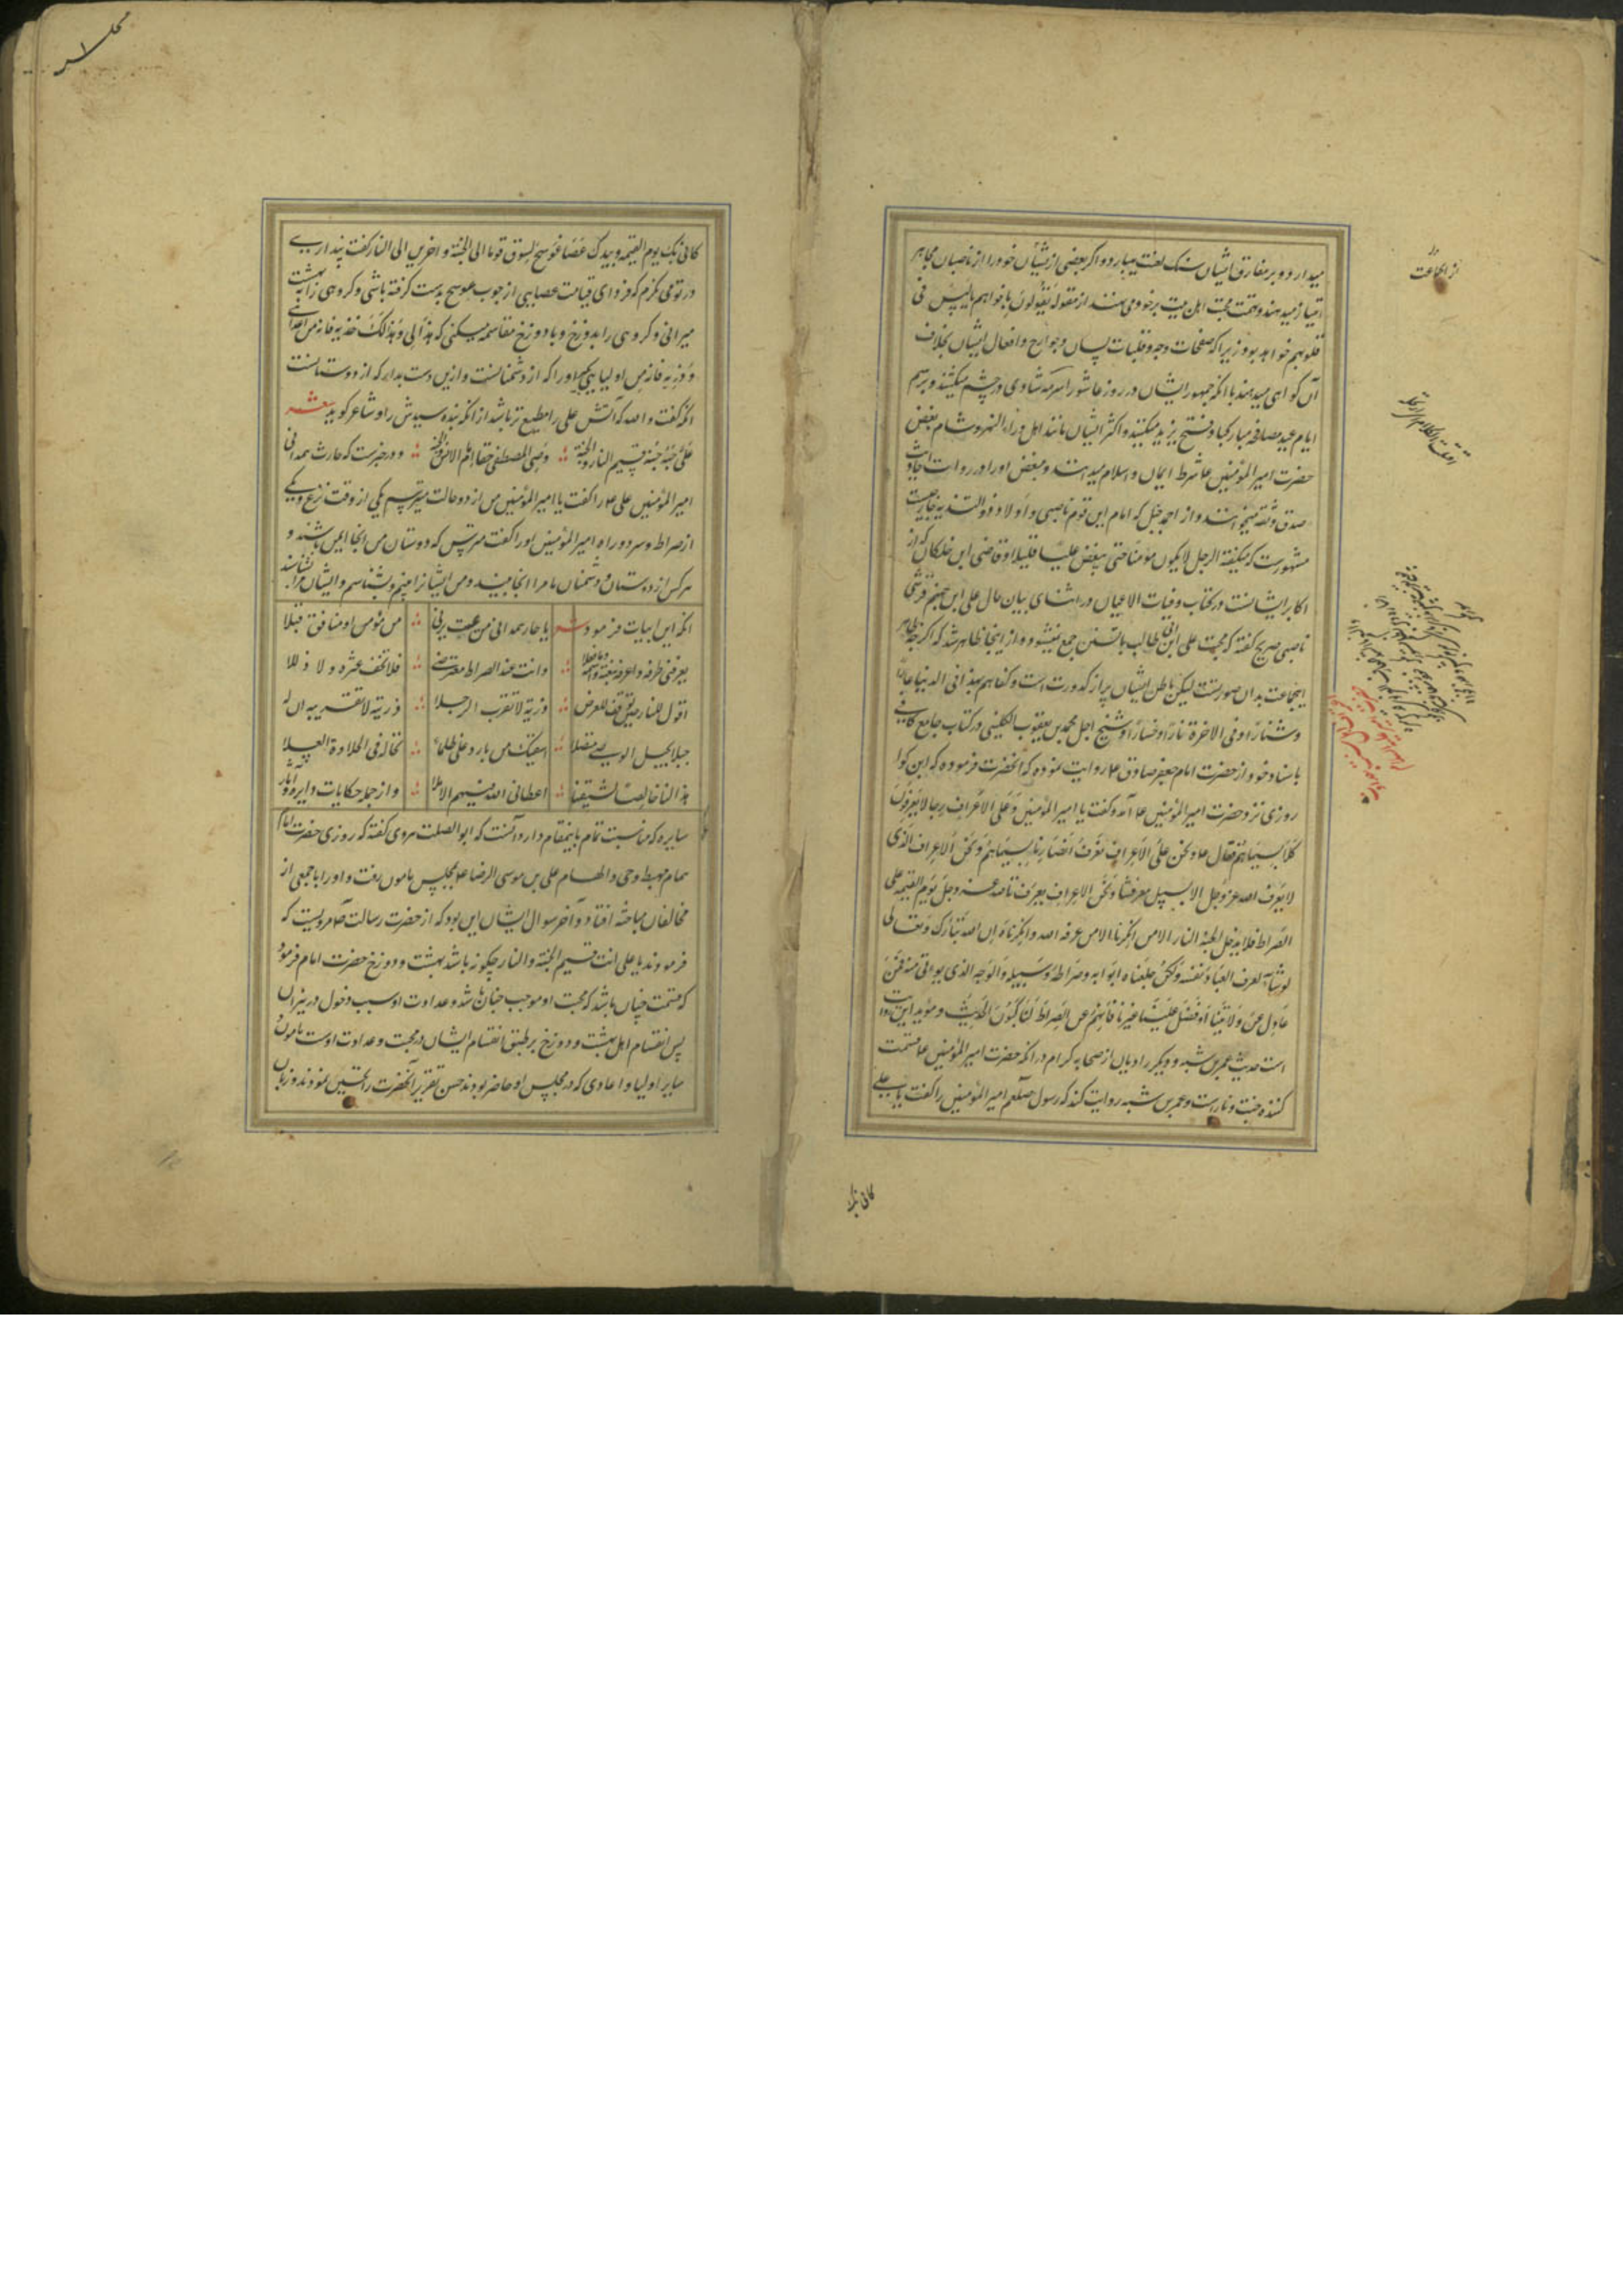 میدارد و بر مفارق ایشان سنک لعنت میبارد و اکر بعضی از ایشان خود را از ناصبیان مجاهر
امتیاز میدهند و تهمت محبت اهل بیت بر خود می بندند از مقوله یقولون بافواههم ما لیس فی
قلوبهم خواهد بود زیرا که صفحات وجه و فلتات لسان و جوارح و افعال ایشان بخلاف
آن کواهی میدهند با آنکه جمهور ایشان در روز عاشورا سرمه شادی در چشم میکشند و برسم
ایام عید مصافحه و مبارکباد فتح یزید میکنند و اکثر ایشان مانند اهل ماوراء النهر و شام بغض
حضرت امیر المؤمنین ع را شرط ایمان و اسلام میدانند و مبغض او را در روایت احادیث
صدق و ثقه میخوانند و از احمد حنبل که امام این قوم ناصبی و اولاد ذو الثدیه خارجیست
مشهورست که میکفته الرجل لا یکون مؤمنا حتی یبغض علیا قلیلا و قاضی ابن خلکان که از
اکابر ایشانست در کتاب وفیات الاعیان در اثنای بیان حال علی ابن جهم قرشی
ناصبی صریح کفته که محبت علی ابن ابی طالب با تسنن جمع نمیشود و از اینجا ظاهر شد که اکرچه ظاهر
اینجماعت بدان صورتست لیکن باطن ایشان پر از کدورت است و کفاهم بهذا فی الدنیا عارا
و شنارا و فی الاخرة نارا و خسارا و شیخ اجل محمد بن یعقوب الکلینی در کتاب جامع کافی
باسناد خود از حضرت امام جعفر صادق ع روایت نموده که آنحضرت فرموده که ابن کوا
روزی نزد حضرت امیر المؤمنین ع آمد و کفت یا امیر المؤمنین و علی الاعراف رجال یعرفون
کلا بسیماهم فقال ع و نحن علی الاعراف نعرف انصارنا بسیماهم و نحن الاعراف الذی
لا یعرف الله عز و جل الا بسبیل معرفتنا و نحن الاعراف یعرفنا الله عز و جل یوم القیمة علی
الصراط فلا یدخل الجنة الا من عرفنا و عرفناه و لا یدخل النار الا من انکرنا و انکرناه ان الله تبارک و تعالی
لو شاء لعرف العباد نفسه و لکن جعلنا ابوابه و صراطه و سبیله و الوجه الذی یؤتی منه فمن
عدل عن ولایتنا او فضل علینا غیرنا فانهم عن الصراط لناکبون الحدیث و مؤید این روایت
است حدیث عمر بن شبه و دیکر راویان از صحابه کرام در آنکه حضرت امیر المؤمنین ع قسمت
کننده جنت و نارست و عمر بن شبه روایت کند که رسول صلعم امیر المؤمنین را کفت یا علی
کانی بک
کانی بک یوم القیمة و بیدک عصا عوسج تسوق قوما الی الجنة و اخرین الی النار کفت پنداری
در تو می نکرم که فردای قیامت عصایی از چوب عوسج بدست کرفته باشی و کروهی را به بهشت
میرانی و کروهی را بدوزخ و با دوزخ مقاسمه میکنی که هذا لی و هذا لک خذیه فانه من اعدائی
و ذریه فانه من اولیایی بکیر او را که از دشمنانست و ازین دست بدار که از دوستانست
آنکه کفت و الله که آتش علی را مطیع تر باشد از آنکه بنده سیدش را و شاعر کوید شعر
علی حبه جنة قسیم النار و الجنة وصی المصطفی حقا امام الانس و الجنة و در خبرست که حارث همدانی
امیر المؤمنین علی ع را کفت یا امیر المؤمنین من از دو حالت میترسم یکی از وقت نزع و یکی
از صراط و سر دو راه امیر المؤمنین او را کفت مترس که دوستان من آنجا ایمن باشند و
هر کس از دوستان و دشمنان ما مرا آنجا بینند و من ایشانرا بینم و بشناسم و ایشان مرا بشناسند
آنکه این ابیات فرمود شعر یا حار همدان من یمت یرنی من مؤمن او منافق قبلا
یعرفنی طرفه و اعرفه بنعته و اسمه و ما فعلا وانت عند الصراط معترضی فلا تخف عثرة و لا زللا
اقول للنار حین توقف للعرض ذریه لا تقرب الرجلا ذریه لا تقربیه ان له
حبلا بحبل الوصی متصلا اسقیک من بارد علی ظماء تخاله فی الحلاوة العسلا
هذا لنا خالصا لشیعتنا اعطانی الله فیهم الاملا و از جمله حکایات دایره و آثار
سایره که مناسبت تمام باینمقام دارد آنست که ابو الصلت هروی کفته که روزی حضرت امام
همام مهبط وحی و الهام علی بن موسی الرضا ع بمجلس مامون رفت و او را با جمعی از
مخالفان مباحثه افتاد و آخر سوال ایشان این بود که از حضرت رسالت ص مرویست که
فرمودند یا علی انت قسیم الجنة و النار چکونه باشد بهشت و دوزخ حضرت امام فرمود
که قسمت چنان باشد که محبت او موجب جنان باشد و عداوت او سبب دخول در نیران
پس انقسام اهل بهشت و دوزخ بر طبق انقسام ایشان در محبت و عداوت اوست مامون و
سایر اولیا و اعادی که در مجلس او حاضر بودند حسن تقریر آنحضرت را تحسین نمودند و زبان